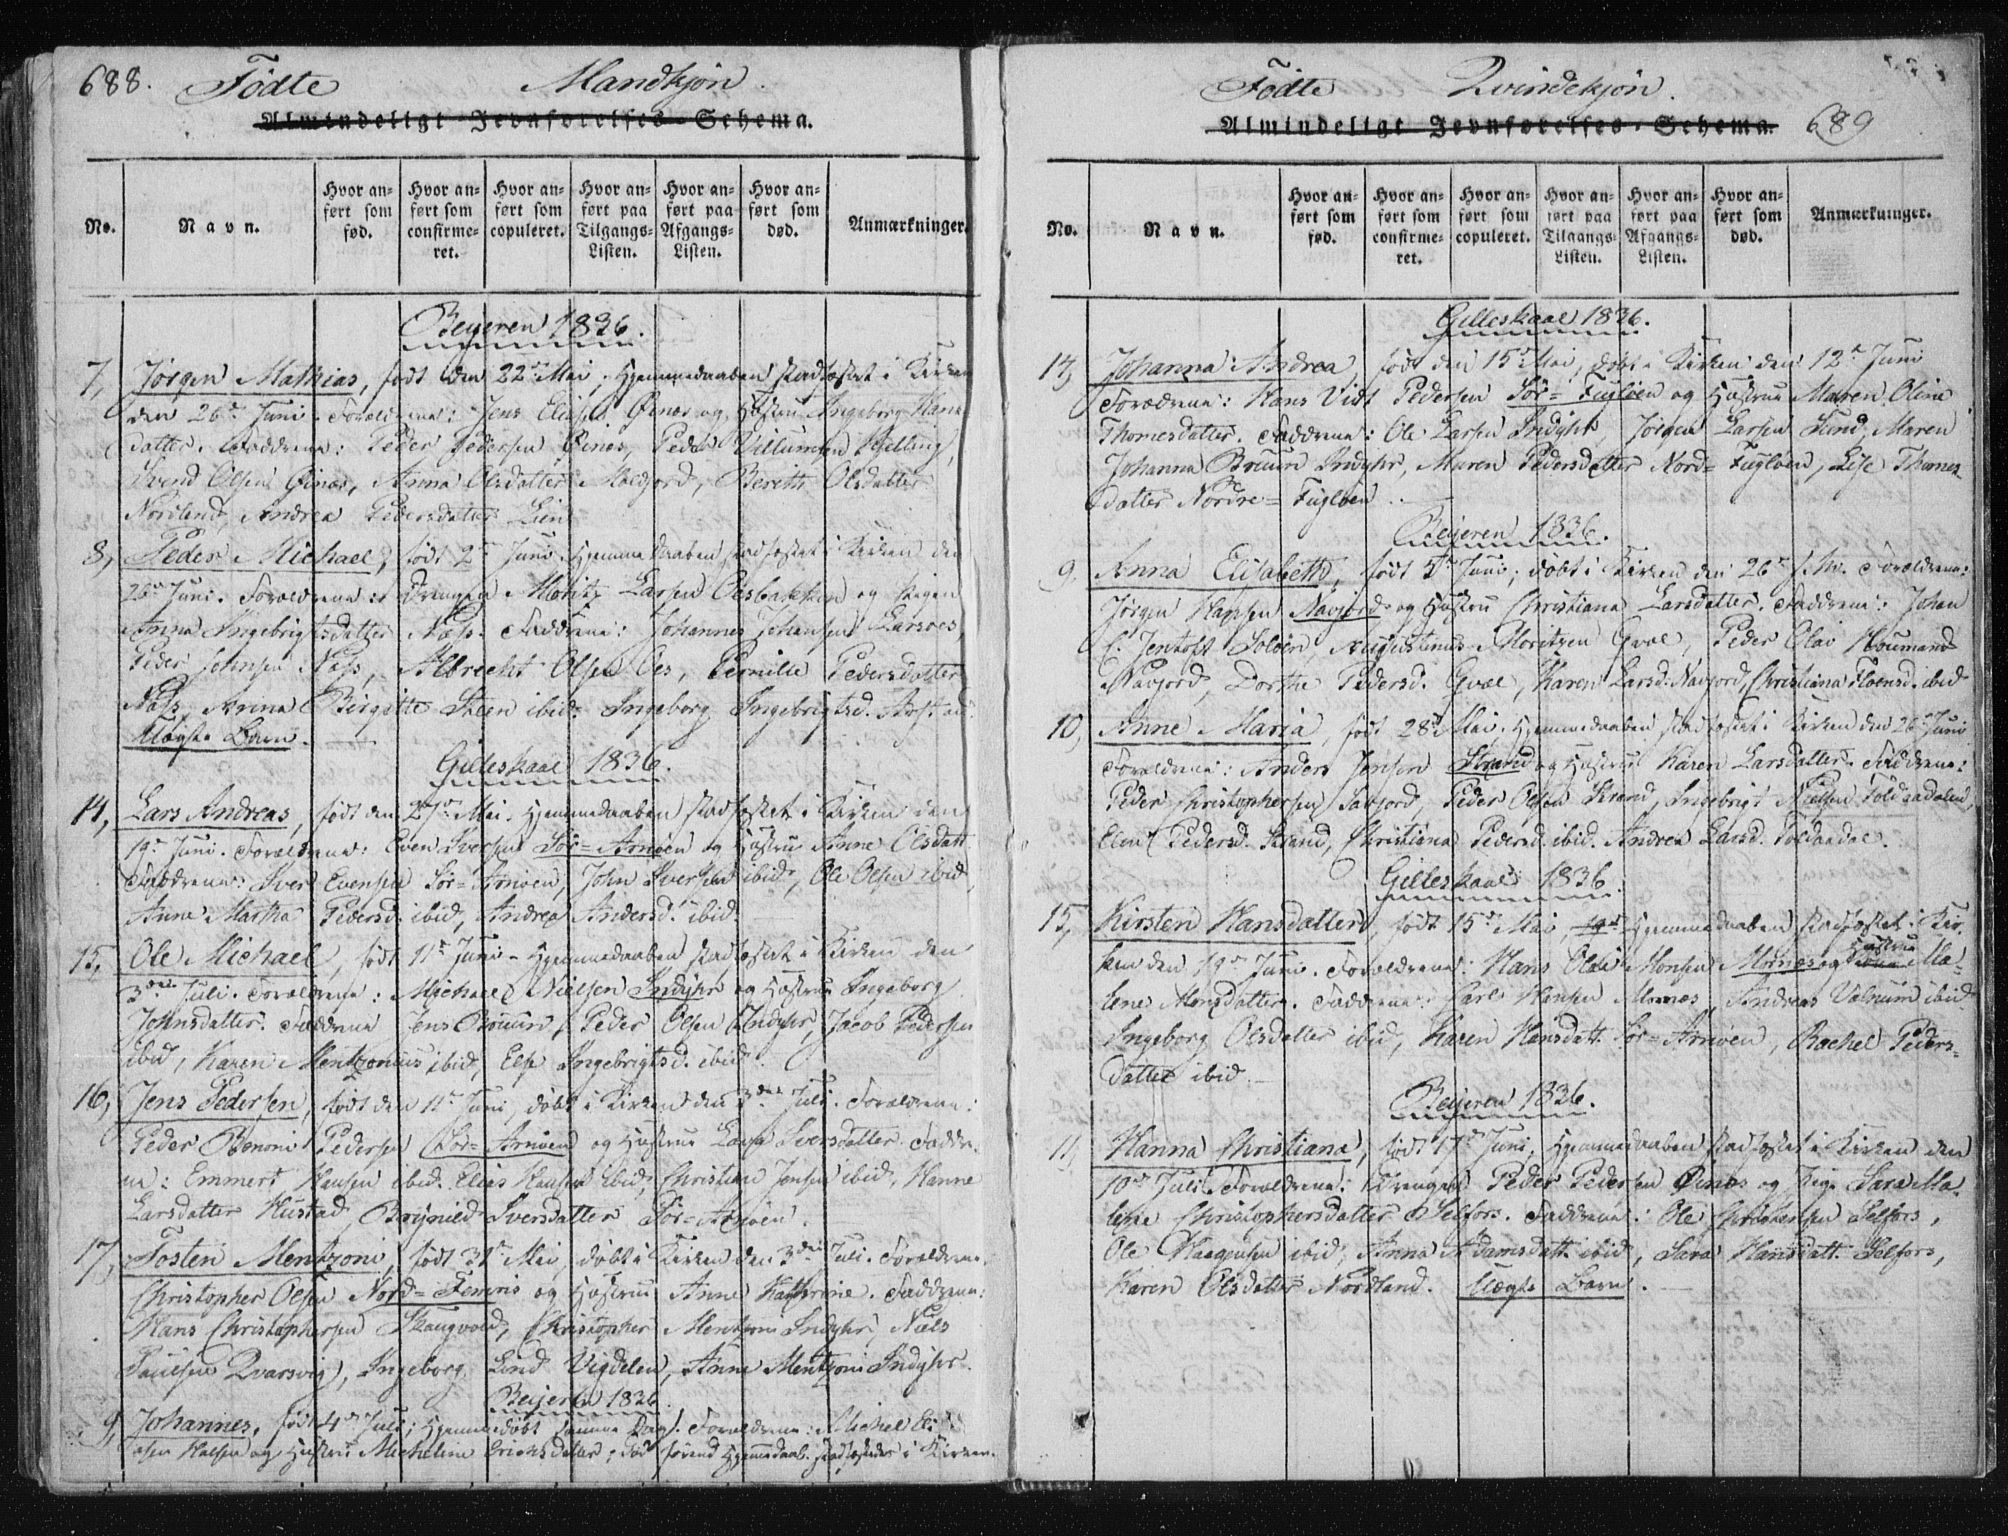 688. Födte Mandkjön.
Almindeligt Jevnførelses-Schema.
No. Navn. Hvor anført som fød. Hvor anført som confirmeret. Hvor anført som copuleret. Hvor anført paa Tilgangs-Listen. Hvor anført paa Afgangs-Listen. Hvor anført som død. Anmærkninger.
Beyeren 1836.
7, Jørgen Mathias, født den 22de Mai, Hjemmedaaben stadfæstet i Kirken
den 26de Juni. Forældrene: Jens Eliasen Øinæs og Hustru Ingeborg Hans
datter. Faddrene: Peder Pedersen Øinæs, Peder Villumsen Kjelling,
Svend Olsen Øinæs, Anna Olsdatter Moldjord, Berith Olsdatter
Nordland, Andrea Pedersdatter Lien
8, Peder Michael, født 2den Juni. Hjemmedaaben stadfæstet i Kirken den
26de Juni. Forældrene: Drengen Moritz Larsen Osbakken og Pigen
Anna Ingebrigtsdatter Næss. Faddrene: Johannes Johansen Larsøes,
Peder Johnsen Næss, Albrecht Olsen Oes, Pernille Pedersdatter
Næss, Anna Birgitte Steen ibid. Ingeborg Ingebrigtsd.
Uægte Barn.
Gilleskaal 1836.
14, Lars Andreas, født den 27de Mai. Hjemmedaaben stadfæstet i Kirken den
19de Juni. Forældrene: Even Iversen Sör-Arnöen og Hustru Anne Olsdatt.
Faddrene: Iver Evensen Sör-Arnöen, John Iversen ibid, Ole Olsen ibid,
Anne Martha Pedersd. ibid, Andrea Andersd. ibid.
15, Ole Michael, født 11te Juni - Hjemmedaaben stadfæstet i Kirken den
3die Juli. Forældrene: Michael Nielsen Indyhr og Hustru Ingeborg
Johnsdatter. Faddrene Jens Bruun, Peder Olsen Indyhr, Jacob Pedersen
ibid, Karen Mentzonius ibid, Else Ingebrigtsd. ibid.
16, Jens Pedersen, født den 11te Juni, døbt i Kirken den 3die Juli. Forældrene:
Peder Benoni Pedersen Sör-Arnöen og Hustrue Iversdatter. Faddre-
ne: Emmert Hansen ibid. Elias Hansen ibid, Christian Jensen ibid, Hanne
Larsdatter Hustad, Brynild Iversdatter Sör-Arnöen.
17, Tosten Mentzoni, født 31te Mai, døbt i Kirken den 3die Juli. Forældrene
Christopher Olsen Nord-Femris og Hustru Anne Kathrine. Faddrene:
Hans Christophersen Skaugvold, Christopher Mentzoni Indyhr, Niels
Paulsen Qvarsvig, Ingeborg Lind Vigdelen, Anne Mentzoni Indyhr.
Beyeren 1836.
9, Johannes, født 4de Juli; Hjemmedöbt samme Dag. Forældrene: Michel Eli
asen og Hustru Micheline Erichsdatter; död förend Hjemmedaab. stadfæstedes i Kirken.
Födte Qvindekjön.
Almindeligt Jevnførelses-Schema. 689
No. Navn. Hvor anført som fød. Hvor anført som confirmeret. Hvor anført som copuleret. Hvor anført paa Tilgangs-Listen. Hvor anført paa Afgangs-Listen. Hvor anført som død. Anmærkninger.
Gilleskaal 1836.
14, Johanna Andrea, født den 15de Mai, döbt i Kirken den 12te Juni
Forædrene: Hans Vidt Pedersen Sör-Fuglöen og Hustrue Maren Oline
Thomesdatter. Faddrene: Ole Larsen Indyhr, Jörgen Larsen Sund, Maren
Johanna Bruun Indyhr, Maren Pedersdatter Nord-Fuglöen, Lise Thomes-
datter Nordre-Fuglöen.
Beyeren 1836.
9, Anna Elisabeth, født 5te Juni, döbt i Kirken den 26de s. M. Forældrene:
Jörgen Hansen Navjord og Hustru Christiana Larsdatter. Faddrene: Johan
C. Jentoft Solöen, Augustinus Moritzen Gvæl, Peder Olai Houmand
Navjord, Dorthe Pedersd. Gvæl, Karen Larsd. Navjord, Christiana ibid
10, Anne Maria, født 28de Mai. Hjemmedaaben stadfæstet i Kirken den 26de Juni
Forældrene: Anders Jensen Strand og Hustrue Karen Larsdatter. Faddrene:
Peder Christophersen Savjord, Peder Olsen Strand, Ingebrigt Nielsen Toldaadalen,
Elen Pedersd. Strand, Christiana Pedersd. ibid. Andrea Larsd. Toldaadal.
Gilleskaal 1836.
15, Kirsten Hansdatter, født 15de Mai, Hjemmedaaben stadfæstet i Kir-
ken den 19de Juni. Forældrene: Hans Olai Monsen Mornæs og Hustrue Ma-
lene Monsdatter. Faddrene: Carl Hansen Mornæs, Andreas Valnum ibid
Ingeborg Olsdatter ibid, Karen Hansdatt. Sör-Arnöen, Rachel Peders-
datter ibid.
Beyeren 1836.
11, Hanna Christiana, født 17de Juni, Hjemmedaaben stadfæstet i Kirken den
10de Juli. Forældrene: Drengen Peder Pedersen Øinæs og Pige Sara Ma-
lene Christophersdatter Selfors. Faddrene: Ole Christensen Selfors,
Ole Haagensen ibid, Anna Adamsdatt. ibid, Sara Hansdatt. Selfors,
Karen Olsdatter Nordland. Uægte Barn.